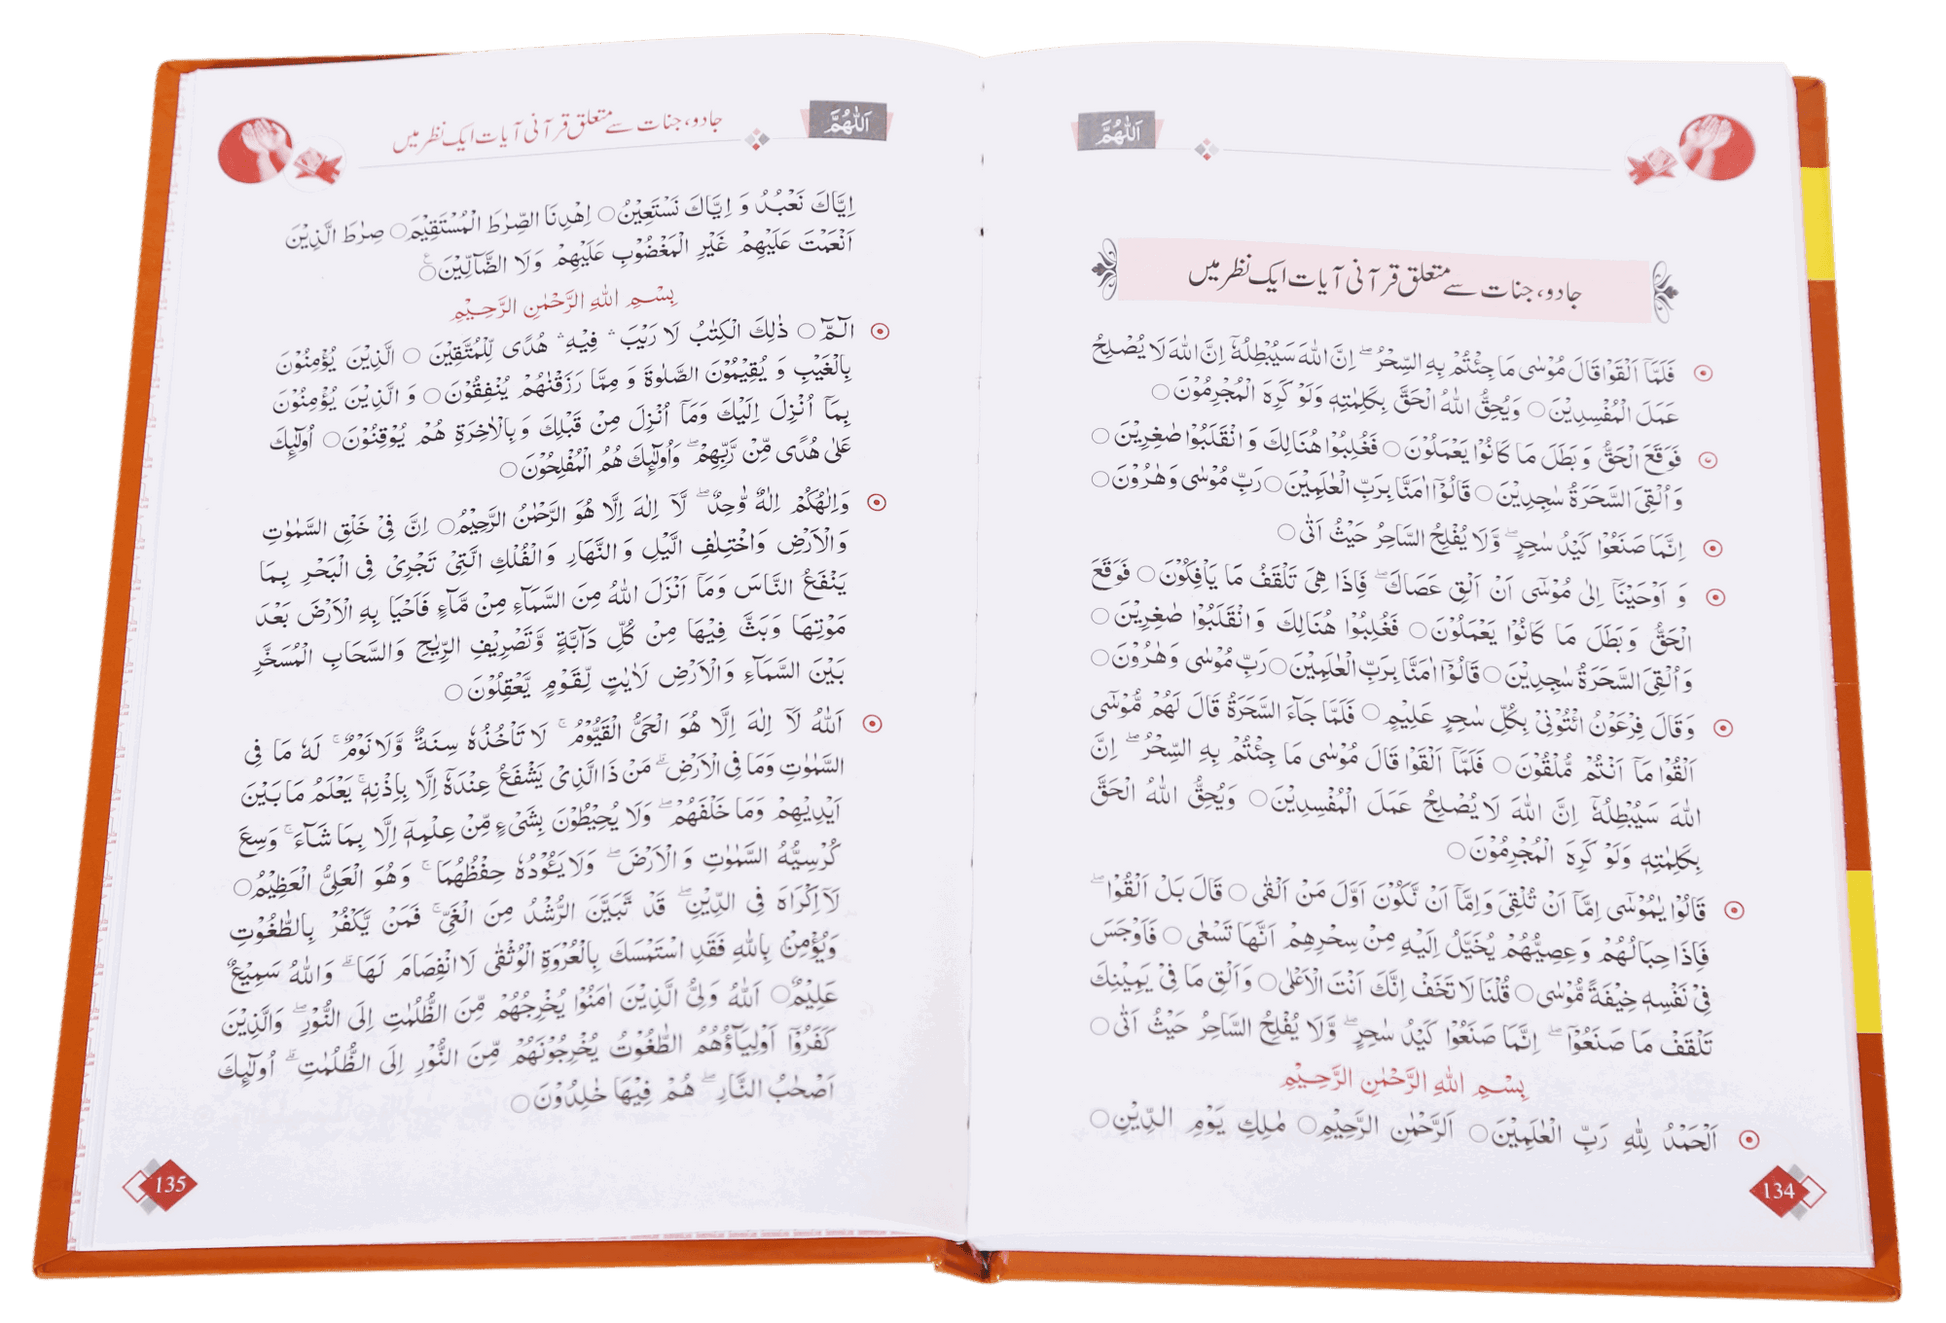 اَللّٰهُمَّ
جادو، جنات سے متعلق قرآنی آیات ایک نظر میں
فَلَمَّاۤ اَلْقَوْا قَالَ مُوْسٰی مَا جِئْتُمْ بِهِ السِّحْرُ ؕ اِنَّ اللّٰهَ سَیُبْطِلُهٗ ؕ اِنَّ اللّٰهَ لَا یُصْلِحُ
عَمَلَ الْمُفْسِدِیْنَ○ وَیُحِقُّ اللّٰهُ الْحَقَّ بِكَلِمٰتِهٖ وَلَوْ كَرِهَ الْمُجْرِمُوْنَ○
فَوَقَعَ الْحَقُّ وَ بَطَلَ مَا كَانُوْا یَعْمَلُوْنَ○ فَغُلِبُوْا هُنَالِكَ وَ انْقَلَبُوْا صٰغِرِیْنَ○
وَ اُلْقِیَ السَّحَرَةُ سٰجِدِیْنَ○ قَالُوْۤا اٰمَنَّا بِرَبِّ الْعٰلَمِیْنَ○ رَبِّ مُوْسٰی وَ هٰرُوْنَ○
اِنَّمَا صَنَعُوْا كَیْدُ سٰحِرٍ ؕ وَّلَا یُفْلِحُ السَّاحِرُ حَیْثُ اَتٰی○
وَ اَوْحَیْنَاۤ اِلٰی مُوْسٰۤی اَنْ اَلْقِ عَصَاكَ ۚ فَاِذَا هِیَ تَلْقَفُ مَا یَاْفِكُوْنَ○ فَوَقَعَ
الْحَقُّ وَ بَطَلَ مَا كَانُوْا یَعْمَلُوْنَ○ فَغُلِبُوْا هُنَالِكَ وَ انْقَلَبُوْا صٰغِرِیْنَ○
وَ اُلْقِیَ السَّحَرَةُ سٰجِدِیْنَ○ قَالُوْۤا اٰمَنَّا بِرَبِّ الْعٰلَمِیْنَ○ رَبِّ مُوْسٰی وَ هٰرُوْنَ○
وَ قَالَ فِرْعَوْنُ ائْتُوْنِیْ بِكُلِّ سٰحِرٍ عَلِیْمٍ○ فَلَمَّا جَآءَ السَّحَرَةُ قَالَ لَهُمْ مُّوْسٰۤی
اَلْقُوْا مَاۤ اَنْتُمْ مُّلْقُوْنَ○ فَلَمَّاۤ اَلْقَوْا قَالَ مُوْسٰی مَا جِئْتُمْ بِهِ السِّحْرُ ؕ اِنَّ
اللّٰهَ سَیُبْطِلُهٗ ؕ اِنَّ اللّٰهَ لَا یُصْلِحُ عَمَلَ الْمُفْسِدِیْنَ○ وَیُحِقُّ اللّٰهُ الْحَقَّ
بِكَلِمٰتِهٖ وَلَوْ كَرِهَ الْمُجْرِمُوْنَ○
قَالُوْا یٰمُوْسٰۤی اِمَّاۤ اَنْ تُلْقِیَ وَاِمَّاۤ اَنْ نَّكُوْنَ اَوَّلَ مَنْ اَلْقٰی○ قَالَ بَلْ اَلْقُوْا ۚ
فَاِذَا حِبَالُهُمْ وَ عِصِیُّهُمْ یُخَیَّلُ اِلَیْهِ مِنْ سِحْرِهِمْ اَنَّهَا تَسْعٰی○ فَاَوْجَسَ
فِیْ نَفْسِهٖ خِیْفَةً مُّوْسٰی○ قُلْنَا لَا تَخَفْ اِنَّكَ اَنْتَ الْاَعْلٰی○ وَاَلْقِ مَا فِیْ یَمِیْنِكَ
تَلْقَفْ مَا صَنَعُوْا ؕ اِنَّمَا صَنَعُوْا كَیْدُ سٰحِرٍ ؕ وَّلَا یُفْلِحُ السَّاحِرُ حَیْثُ اَتٰی○
بِسْمِ اللّٰهِ الرَّحْمٰنِ الرَّحِیْمِ
اَلْحَمْدُ لِلّٰهِ رَبِّ الْعٰلَمِیْنَ○ الرَّحْمٰنِ الرَّحِیْمِ○ مٰلِكِ یَوْمِ الدِّیْنِ○
134
اَللّٰهُمَّ
جادو، جنات سے متعلق قرآنی آیات ایک نظر میں
اِیَّاكَ نَعْبُدُ وَ اِیَّاكَ نَسْتَعِیْنُ○ اِهْدِنَا الصِّرٰطَ الْمُسْتَقِیْمَ○ صِرٰطَ الَّذِیْنَ
اَنْعَمْتَ عَلَیْهِمْ غَیْرِ الْمَغْضُوْبِ عَلَیْهِمْ وَلَا الضَّآلِّیْنَ○
بِسْمِ اللّٰهِ الرَّحْمٰنِ الرَّحِیْمِ
الٓمّٓ○ ذٰلِكَ الْكِتٰبُ لَا رَیْبَ ۛ فِیْهِ ۛ هُدًی لِّلْمُتَّقِیْنَ○ الَّذِیْنَ یُؤْمِنُوْنَ
بِالْغَیْبِ وَ یُقِیْمُوْنَ الصَّلٰوةَ وَ مِمَّا رَزَقْنٰهُمْ یُنْفِقُوْنَ○ وَ الَّذِیْنَ یُؤْمِنُوْنَ
بِمَاۤ اُنْزِلَ اِلَیْكَ وَمَاۤ اُنْزِلَ مِنْ قَبْلِكَ وَ بِالْاٰخِرَةِ هُمْ یُوْقِنُوْنَ○ اُولٰٓئِكَ
عَلٰی هُدًی مِّنْ رَّبِّهِمْ ۙ وَاُولٰٓئِكَ هُمُ الْمُفْلِحُوْنَ○
وَاِلٰهُكُمْ اِلٰهٌ وَّاحِدٌ ۚ لَاۤ اِلٰهَ اِلَّا هُوَ الرَّحْمٰنُ الرَّحِیْمُ○ اِنَّ فِیْ خَلْقِ السَّمٰوٰتِ
وَالْاَرْضِ وَاخْتِلٰفِ الَّیْلِ وَ النَّهَارِ وَ الْفُلْكِ الَّتِیْ تَجْرِیْ فِی الْبَحْرِ بِمَا
یَنْفَعُ النَّاسَ وَمَاۤ اَنْزَلَ اللّٰهُ مِنَ السَّمَآءِ مِنْ مَّآءٍ فَاَحْیَا بِهِ الْاَرْضَ بَعْدَ
مَوْتِهَا وَبَثَّ فِیْهَا مِنْ كُلِّ دَآبَّةٍ وَّتَصْرِیْفِ الرِّیٰحِ وَالسَّحَابِ الْمُسَخَّرِ
بَیْنَ السَّمَآءِ وَ الْاَرْضِ لَاٰیٰتٍ لِّقَوْمٍ یَّعْقِلُوْنَ○
اَللّٰهُ لَاۤ اِلٰهَ اِلَّا هُوَ الْحَیُّ الْقَیُّوْمُ ۚ لَا تَاْخُذُهٗ سِنَةٌ وَّلَا نَوْمٌ ؕ لَهٗ مَا فِی
السَّمٰوٰتِ وَمَا فِی الْاَرْضِ ؕ مَنْ ذَا الَّذِیْ یَشْفَعُ عِنْدَهٗۤ اِلَّا بِاِذْنِهٖ ؕ یَعْلَمُ مَا بَیْنَ
اَیْدِیْهِمْ وَمَا خَلْفَهُمْ ۚ وَلَا یُحِیْطُوْنَ بِشَیْءٍ مِّنْ عِلْمِهٖۤ اِلَّا بِمَا شَآءَ ۚ وَسِعَ
كُرْسِیُّهُ السَّمٰوٰتِ وَ الْاَرْضَ ۚ وَلَا یَـُٔوْدُهٗ حِفْظُهُمَا ۚ وَهُوَ الْعَلِیُّ الْعَظِیْمُ○
لَاۤ اِكْرَاهَ فِی الدِّیْنِ ۙ قَدْ تَّبَیَّنَ الرُّشْدُ مِنَ الْغَیِّ ۚ فَمَنْ یَّكْفُرْ بِالطَّاغُوْتِ
وَیُؤْمِنْۢ بِاللّٰهِ فَقَدِ اسْتَمْسَكَ بِالْعُرْوَةِ الْوُثْقٰی لَا انْفِصَامَ لَهَا ؕ وَاللّٰهُ سَمِیْعٌ
عَلِیْمٌ○ اَللّٰهُ وَلِیُّ الَّذِیْنَ اٰمَنُوْا یُخْرِجُهُمْ مِّنَ الظُّلُمٰتِ اِلَی النُّوْرِ ؕ وَالَّذِیْنَ
كَفَرُوْۤا اَوْلِیَآؤُهُمُ الطَّاغُوْتُ یُخْرِجُوْنَهُمْ مِّنَ النُّوْرِ اِلَی الظُّلُمٰتِ ؕ اُولٰٓئِكَ
اَصْحٰبُ النَّارِ ۚ هُمْ فِیْهَا خٰلِدُوْنَ○
135